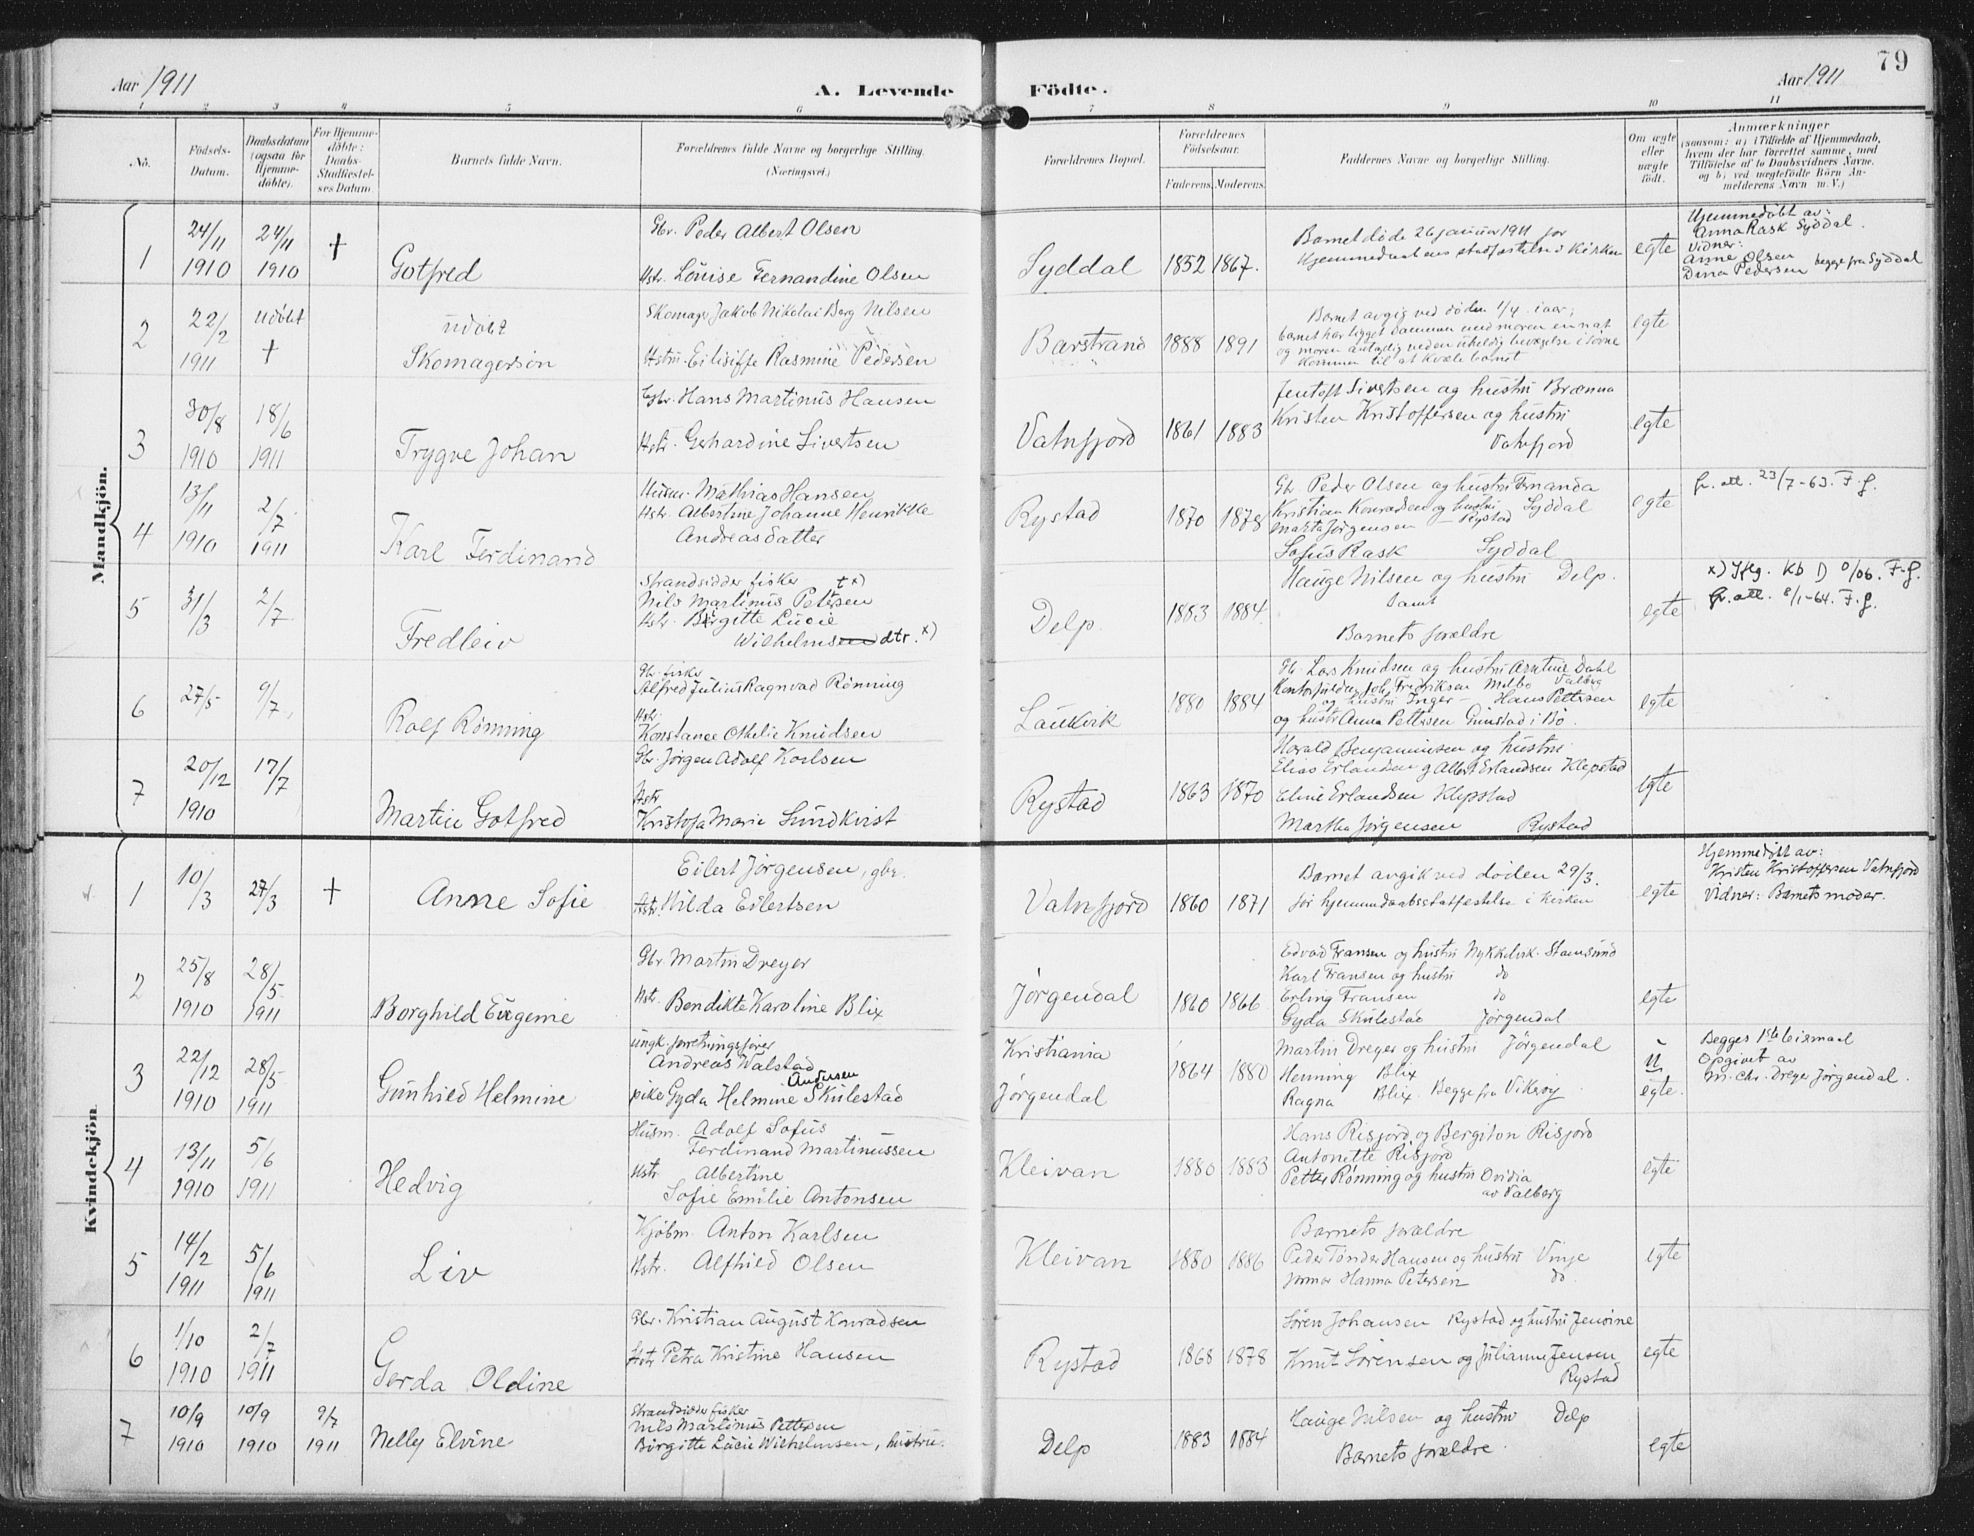 79
Aar 1911
A. Levende Födte.
Aar 1911
1 2 3 4 5 6 7 8 9 10 11
No.
Födsels-Datum.
Daabsdatum (ogsaa for Hjemme-döbte).
For Hjemme-döbte: Daabs-Stadfæstel-ses Datum.
Barnets fulde Navn.
Forældrenes fulde Navne og borgerlige Stilling.
(Næringsvei.)
Forældrenes Bopæl.
Forældrenes Födselsaar.
Faderens. Moderens.
Faddernes Navne og borgerlige Stilling.
Om ægte eller uægte födt.
Anmærkninger
(saasom: a) i Tilfælde af Hjemmedaab,
hvem der har forrettet samme, med
Tilföielse af to Daabsvidners Navne,
og b) ved uægtefödte Börn An-
melderens Navn m. V.)
Mandkjön.
1 24/11 1910 24/11 1910 † Gotfred
Gbr. Peder Albert Olsen
Hstr. Louise Fernandine Olsen
Syddal 1852 1867.
Barnet døde 26 januar 1911 før
hjemmedaabens stadfæstelse i kirken
egte
Hjemmedøbt av:
Anna Rask Syddal.
Vidner:
Anne Olsen
Dina Pedersen begge fra Syddal
2 22/2 1911 udøbt † udøbt
Skomagersøn
Skomager Jakob Nikolai Berg Nilsen
Hstru. Eilisiffe Rasmine Pedersen
Barstrand 1888 1891
Barnet avgig ved døden 1/4 i aar;
barnet har ligget sammen med moren en nat
og moren antagelig ved en uheldig bevægelse i søvne
kommen til at kvæle barnet
egte
3 30/8 1910 18/6 1911 Trygve Johan
Gbr. Hans Martinus Hansen
Hstr. Gerhardine Sivertsen
Vatnfjord 1861 1883
Jentoft Sivertsen og hustru Brenna
Kristen Kristoffersen og hustru
Vatnfjord
egte
4 13/11 1910 2/7 1911 Karl Ferdinand
Husm. Mathias Hansen
Hstr. Albertine Johanne Henrikke
Andreasdatter
Rystad 1870 1878
Gbr Peder Olsen og hustru Fernanda
Kristian Konradsen og hustru Syddal
Marta Jørgensen — Rystad
Sofus Rask Syddal
egte
fr. att. 23/7-63. F.g.
5 31/3 2/7 Fredleiv
Strandsidder fisker
Nils Martinus Petersen † x)
Hstr. Birgitte Lucie
Wilhelmsen dtr. x)
Delp. 1883 1884.
Hauge Nilsen og hustru Delp.
Samt
Barnets forældre
egte
x) Jfg. Kb D 0/06. F.g.
fr. att. 8/1-64. F.g.
6 27/5 9/7 Rolf Rønning
Gbr. fisker
Alfred Julius Ragnvad Rønning
Hstr.
Konstance Othelie Knudsen
Laukvik 1880 1884
Gb. Lars Knudsen og hustru Arntine Dahl
Joh. Fredriksen Valberg
og hustru Inger — Hans Pettersen
og hustr Anna Pettersen Grimstad i Bø.
egte
7 20/12 1910 17/7 Martin Gotfred
Gbr. Jørgen Adolf Karlsen
Hstr
Kristofa Marie Sundkvist
Rystad 1863 1870
Harald Benjaminsen og hustru
Elias Erlandsen og Albert Erlandsen Klepstad
Eline Erlandsen Klepstad
Martha Jørgensen Rystad
egte
Kvindekjön
1 10/3 27/3 † Anne Sofie
Eilert Jørgensen, gbr.
Hstr. Hilda Eilertsen
Vatnfjord 1860 1871
Barnet avgik ved døden 29/3.
før hjemmedaabsstatfæstelse i kirken
egte
Hjemmedøbt av:
Kristen Kristoffersen Vatnfjord
Vidner: Barnets moder.
2 25/8 1910 28/5 1911 Borghild Eugenie
Gbr Martin Dreyer
Hstr. Bendikte Karoline Blix
Jørgendal 1860 1866
Edvad Fransen og hustru Nykkelvik. Stamsund
Karl Fransen og hustru do
Erling Fransen do
Gyda Skulestad Jørgendal
egte
3 22/12 1910 28/5 1911 Gunhild Helmine
ungk. forretningsfører
Andreas Walstad
Andersen
pike Gyda Helmine Skulestad
Kristiania
Jørgendal
1864 1880
Martin Dreyer og hustru Jørgendal
Henning Blix
Ragna Blix. Begge fra Vikerøy
u
egte.
Begges 1ste leiermaal
Opgivet av
M. Chr. Dreyer Jørgendal.
4 13/11 1910 5/6 1911 Hedvig
Husm. Adolf Sofus
Ferdinand Martinussen
Hstr Albertine
Sofie Emilie Antonsen
Kleivan 1880 1883
Hans Risjord og Bergiton Risjord
Antonette Risjord
Petter Rønning og hustru Ovidia
av Valberg
egte
5 14/2 1911 5/6 1911 Liv
Kjøbm. Anton Karlsen
Hstr. Alfhild Olsen
Kleivan 1880 1886
Barnets forældre
Peder Tønder Hansen og hustru Vinje
jormor Hanna Petersen do
egte
6 1/10 1910 2/7 1911 Gerda Oldine
Gbr. Kristian August Konradsen
Hstr Petra Kristine Hansen
Rystad 1868 1878
Søren Johansen Rystad og hustru Jensine
Knut Sørensen og Julianne Jensen
Rystad
egte
7 10/9 1910 10/9 1910 9/7 1911 Nelly Elvine
Strandsidder fisker
Nils Martinus Pettersen
Birgitte Lucie Wilhelmsen, hustru.
Delp 1883 1884
Hauge Nilsen og hustru Delp
Barnets forældre.
egte